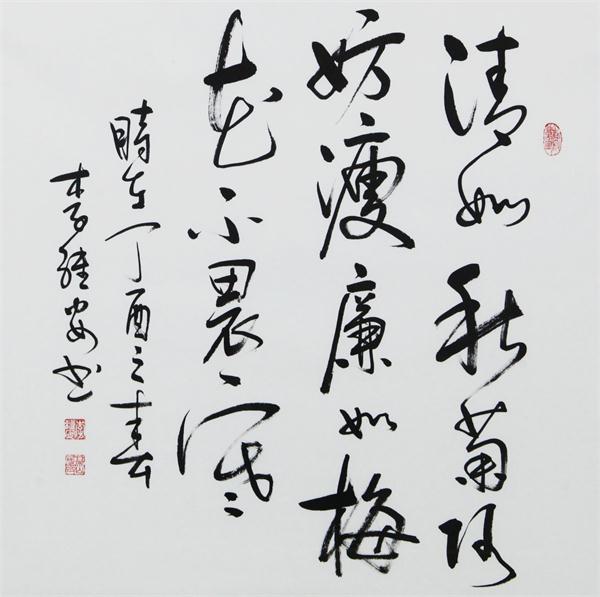 清如秋菊何
妨瘦廉如梅
花不畏寒
時在丁酉之春
李安书